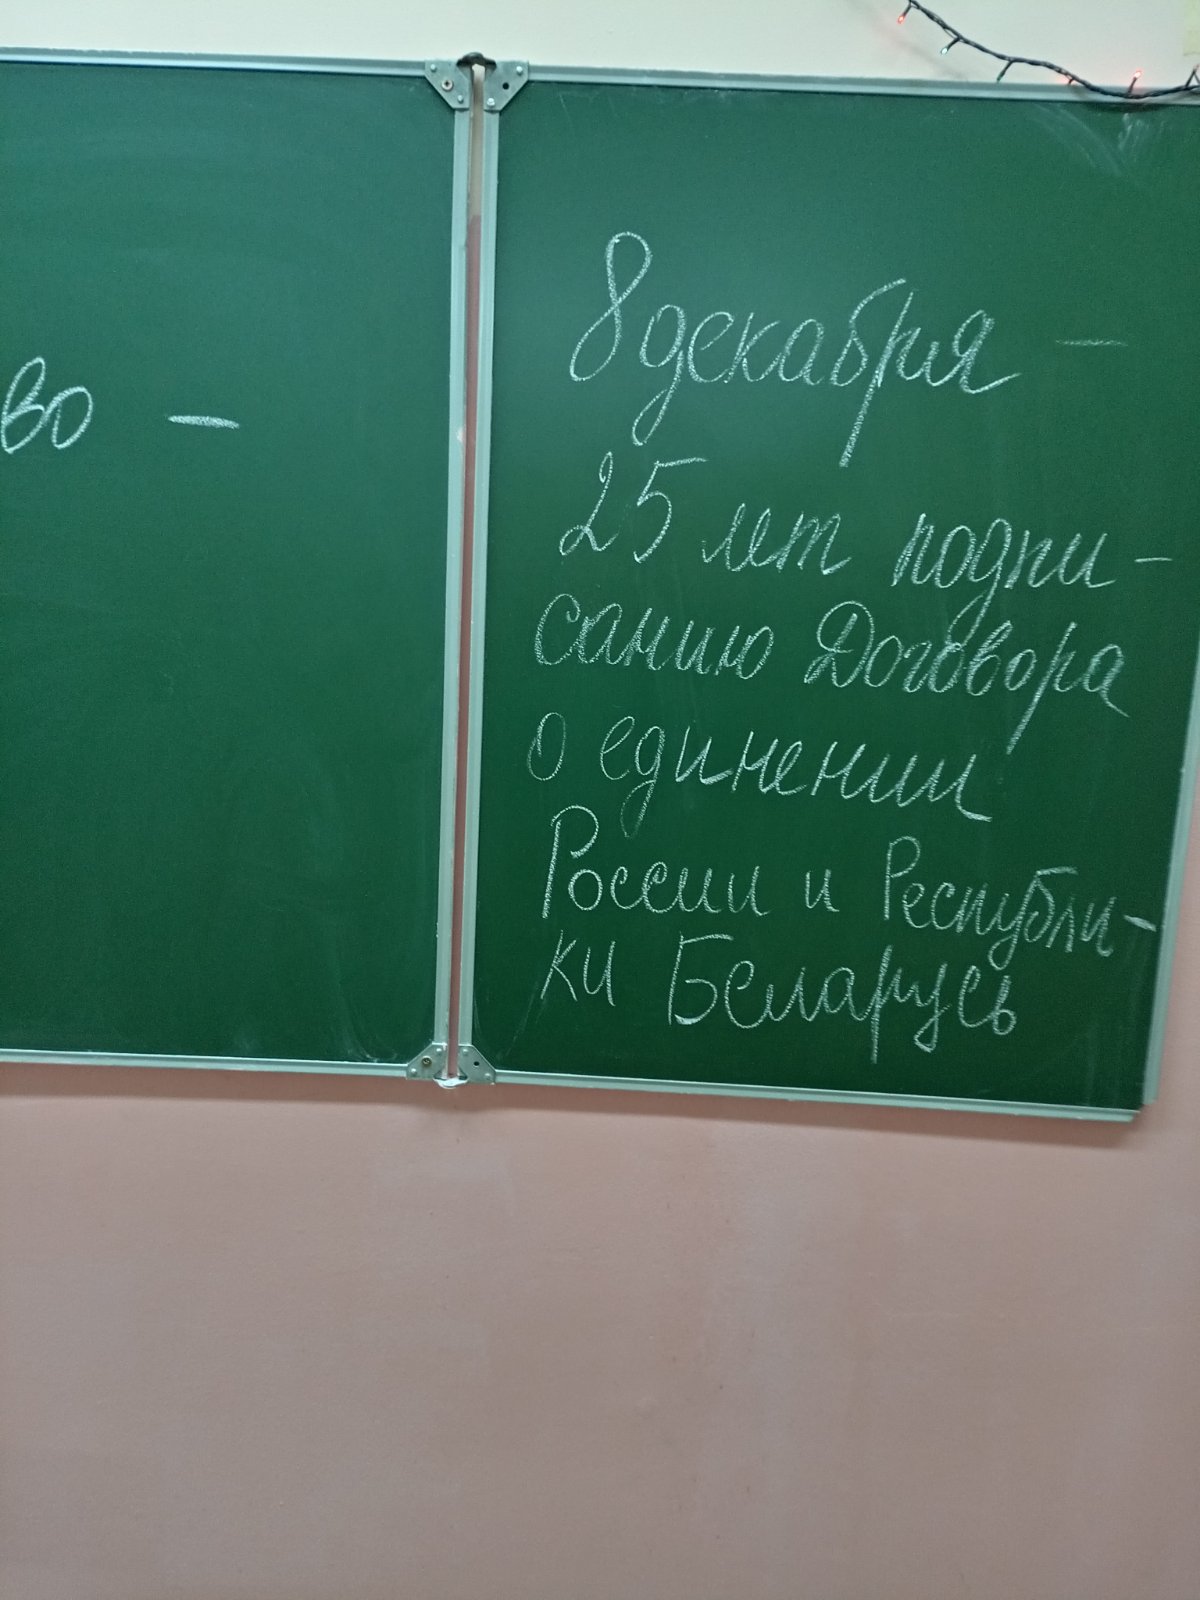 во -
8 декабря -
25 лет подпи-
санию Договора
о единении
России и Республи-
ки Беларусь